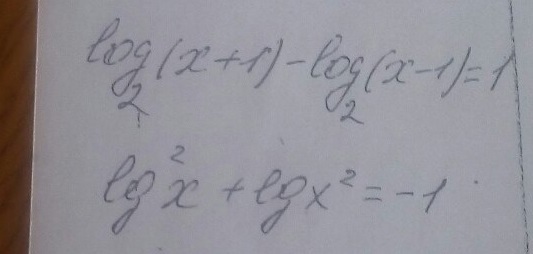 log₂(x+1)-log₂(x-1)=1
lg²x + lgx² = -1